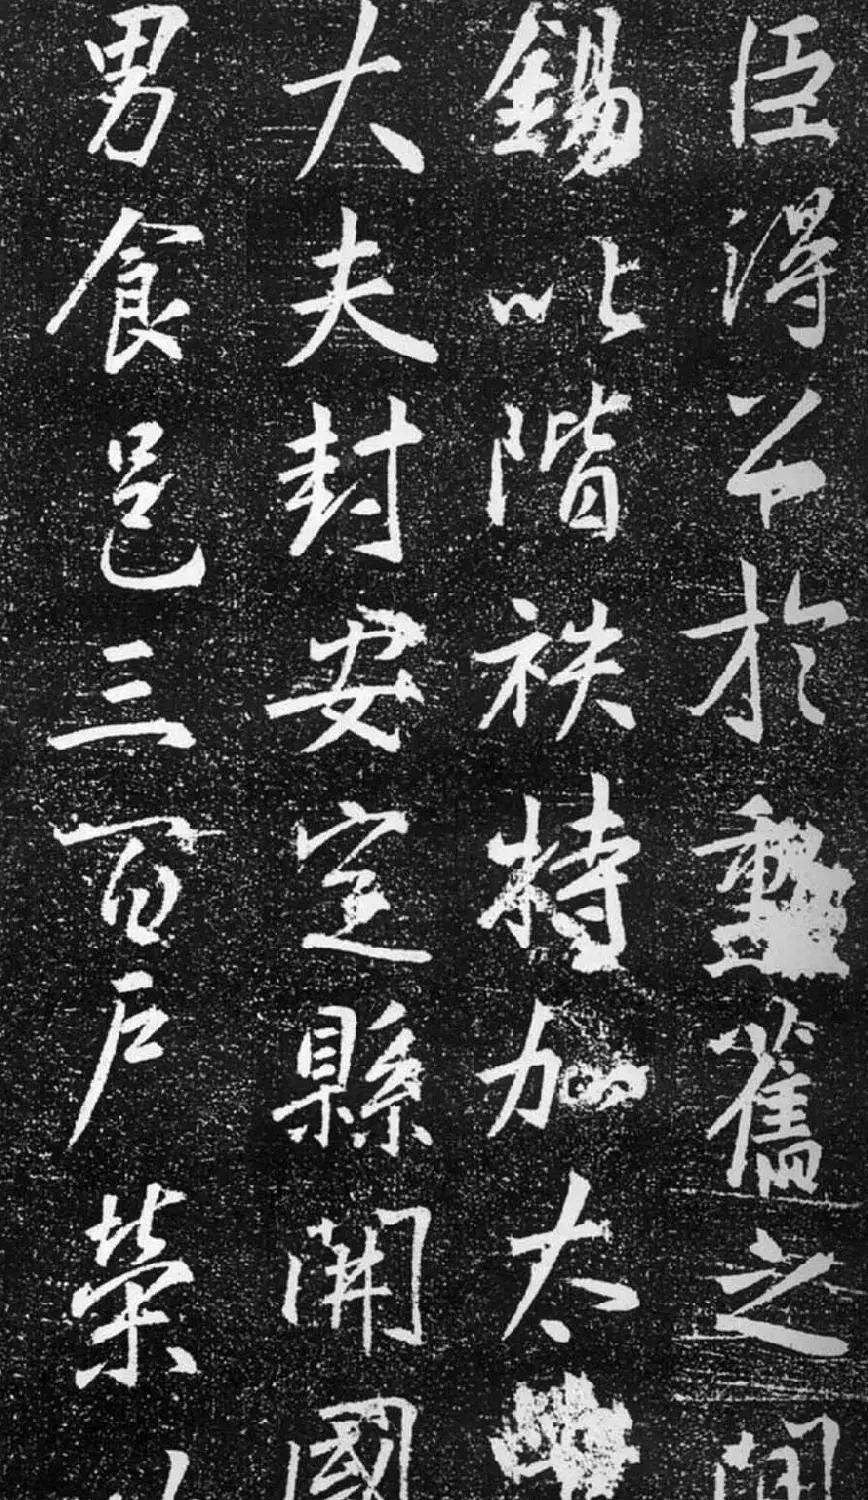 臣得於勳舊之
錫以階秩特加太
大夫封安定縣開國
男食邑三百戶榮